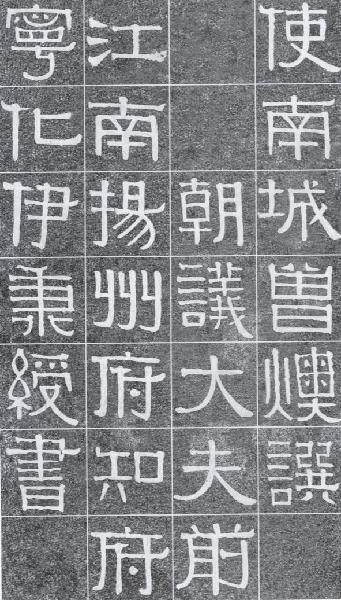 使南城曽燠譔
朝議大夫前
江南揚州府知府
寧化伊秉綬書